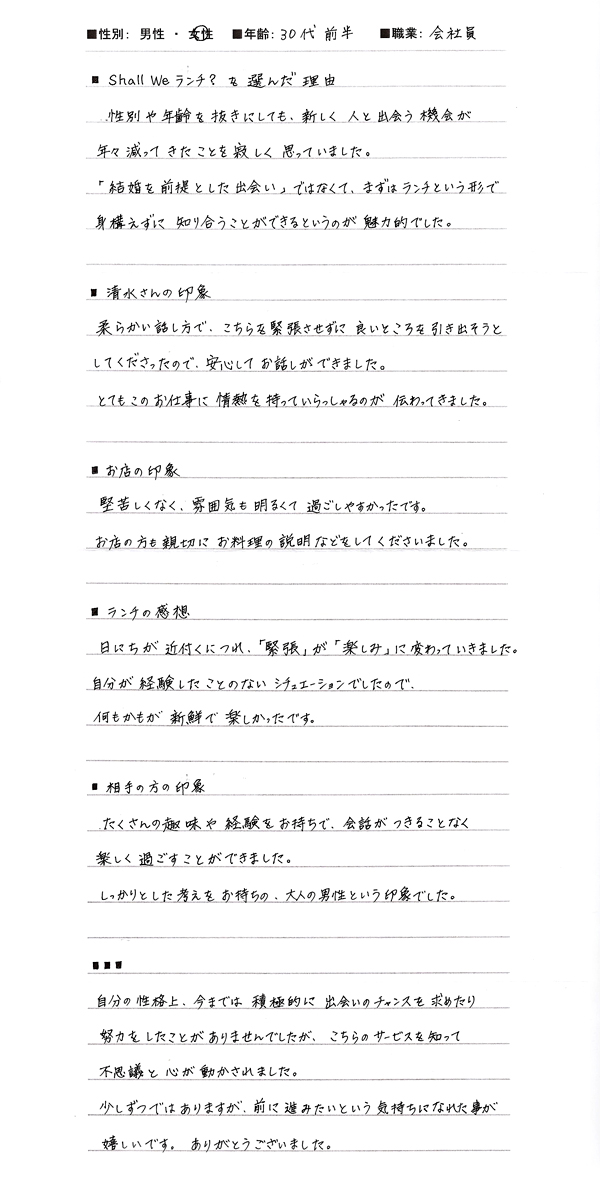 ■性別: 男性 ・ 女性 ■年齢: 30代 前半 ■職業: 会社員
■ Shall We ランチ? を 選んだ 理由
性別や年齢を抜きにしても、新しく 人と出会う 機会が
年々減って きたことを寂しく 思っていました。
「結婚を前提とした出会い」ではなくて、まずはランチという形で
身構えずに 知り合うことができるというのが 魅力的でした。
■ 清水さんの印象
柔らかい話し方で、こちらを緊張させずに 良いところを引き出そうと
してくださったので、安心して お話しができました。
とてもこのお仕事に 情熱を持っていらっしゃるのが 伝わってきました。
■ お店の印象
堅苦しくなく、雰囲気も明るくて 過ごしやすかったです。
お店の方も親切に お料理の説明などをしてくださいました。
■ ランチの感想
日にちが 近付くにつれ、「緊張」が「楽しみ」に変わっていきました。
自分が経験したことのない シチュエーションでしたので、
何もかもが 新鮮で 楽しかったです。
■ 相手の方の印象
たくさんの趣味や 経験をお持ちで、会話が つきることなく
楽しく 過ごすことができました。
しっかりとした考えを お持ちの、大人の男性という印象でした。
■■■
自分の性格上、今までは 積極的に 出会いのチャンスを求めたり
努力をしたことがありませんでしたが、こちらのサービスを知って
不思議と 心が動かされました。
少しずつではありますが、前に進みたいという気持ちになれた事が
嬉しいです。 ありがとうございました。